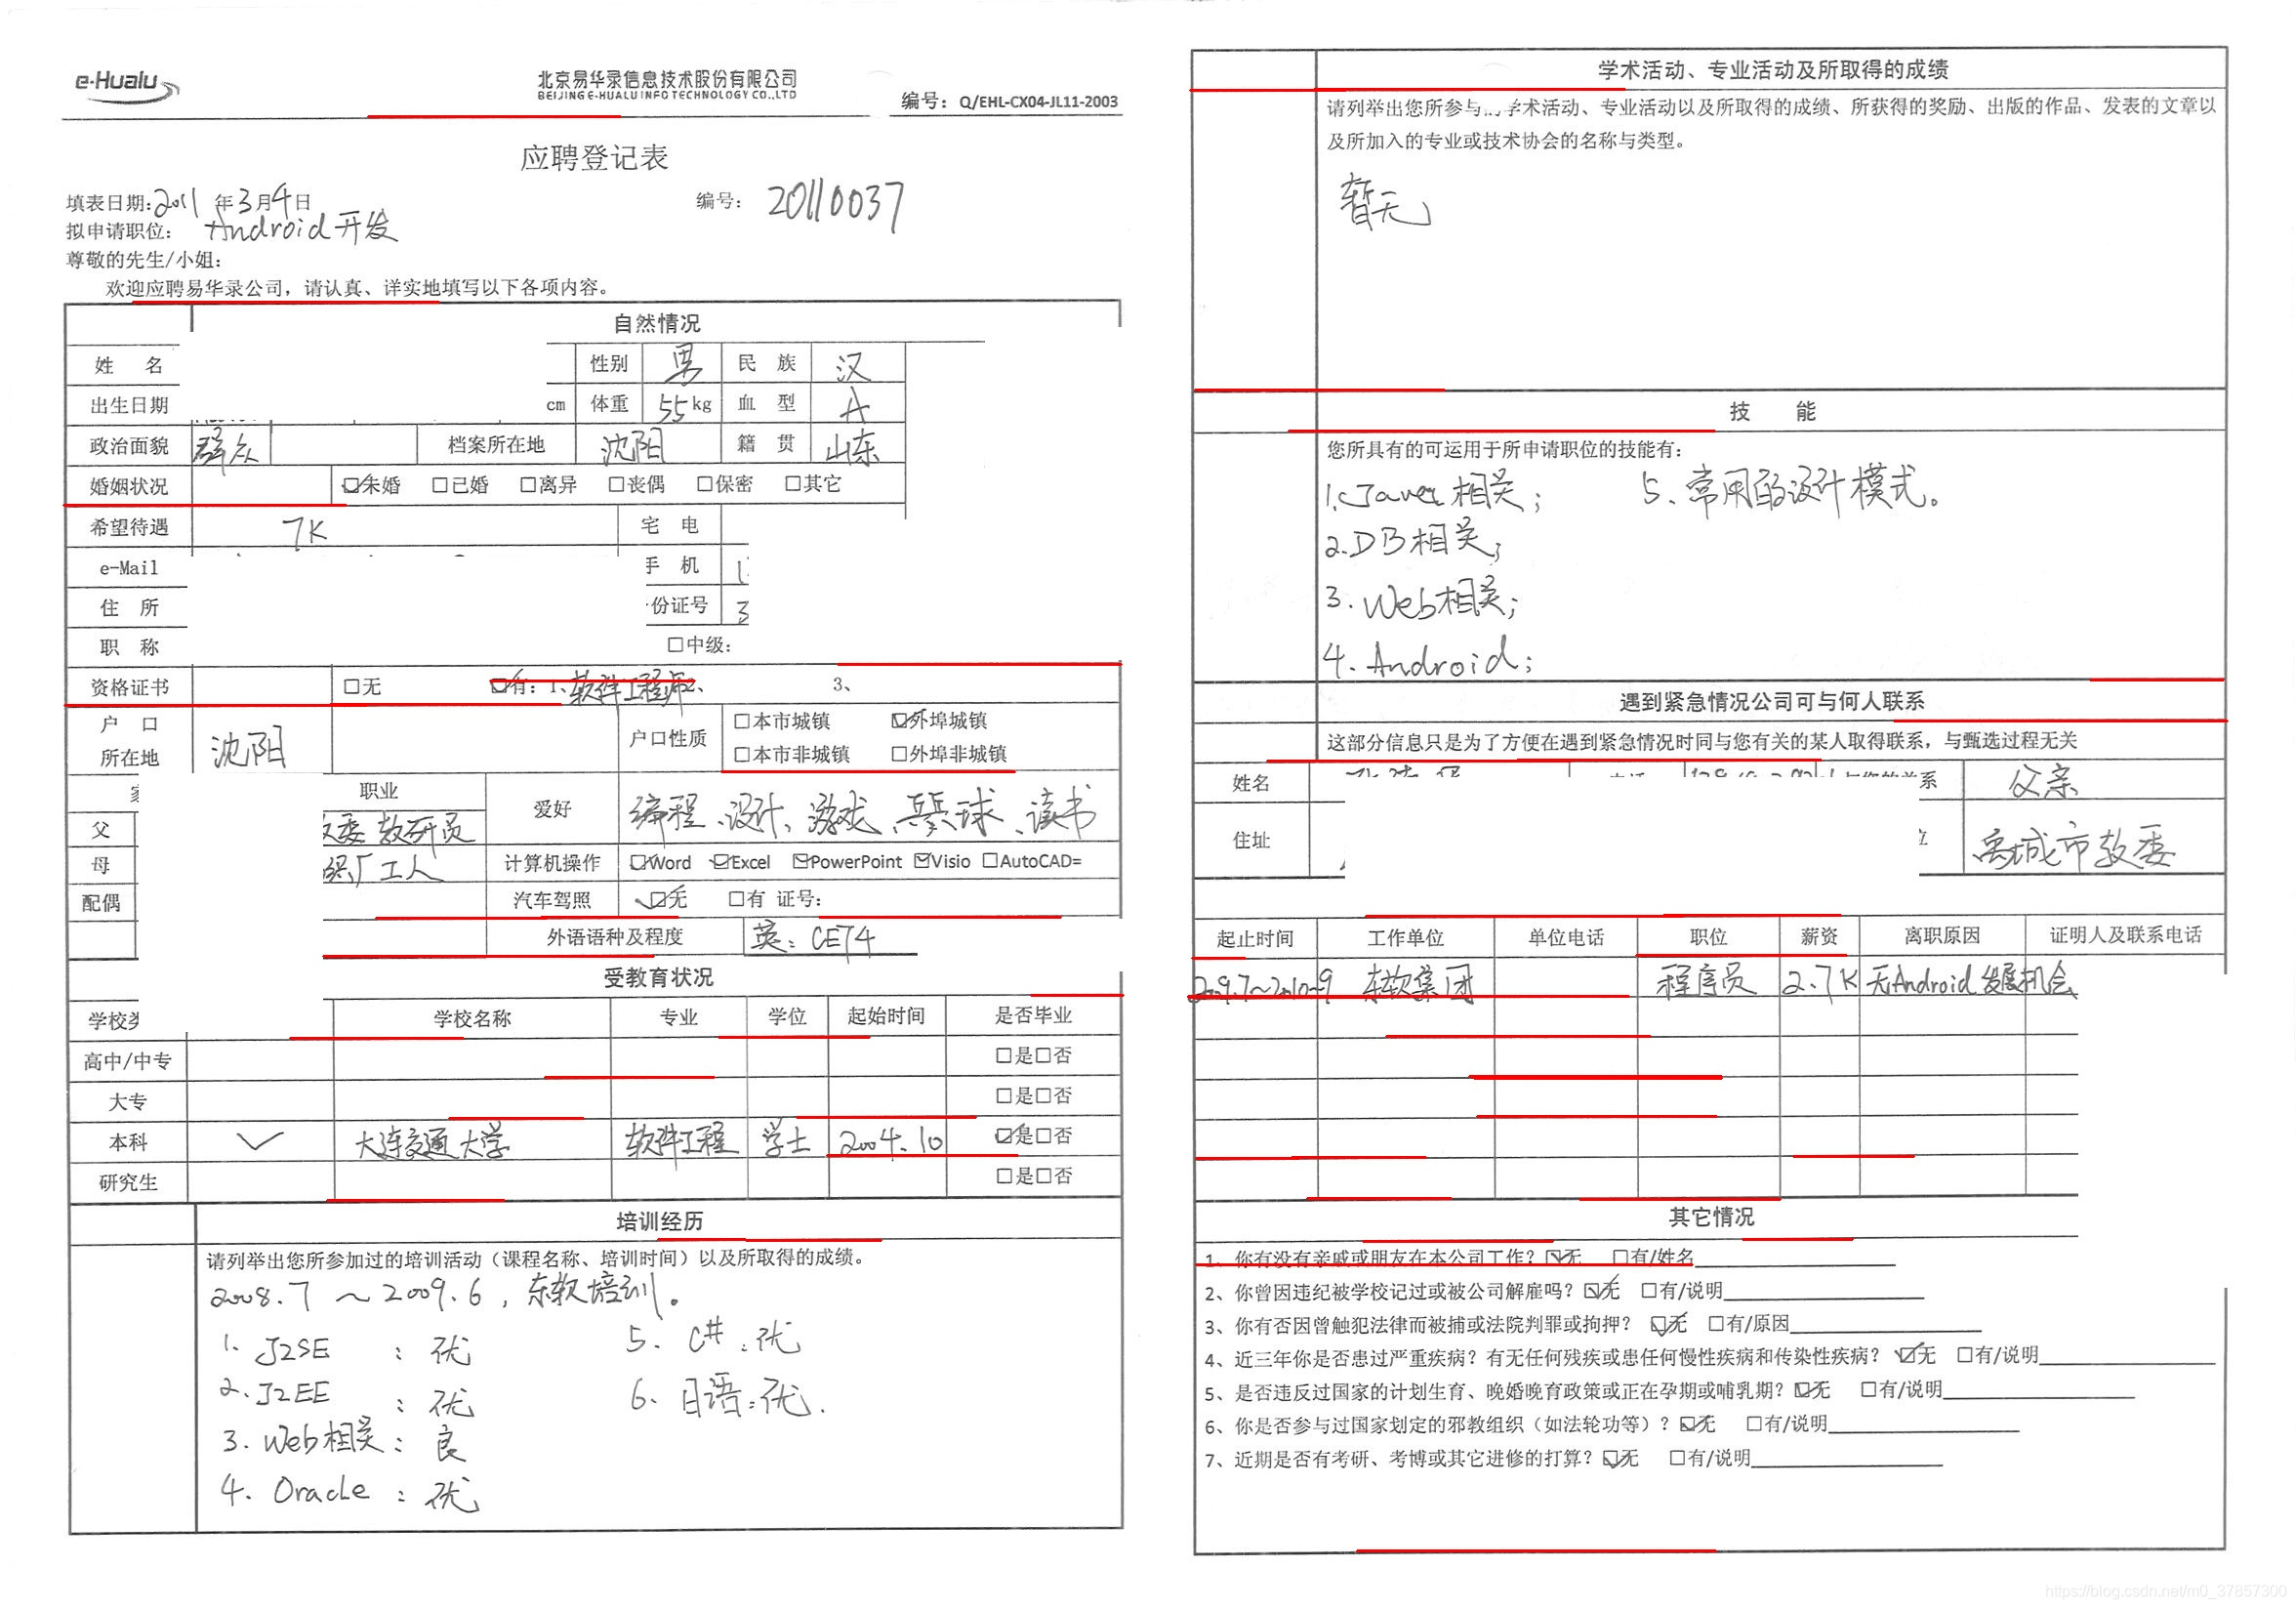 e-Hualu
北京易华录信息技术股份有限公司
BEIJING E-HUALU INFO TECHNOLOGY CO.,LTD
编号：Q/EHL-CX04-JL11-2003
应聘登记表
填表日期:2011 年3月4日 编号： 20110037
拟申请职位： Android开发
尊敬的先生/小姐：
欢迎应聘易华录公司，请认真、详实地填写以下各项内容。
自然情况
姓 名 性别 男 民 族 汉
出生日期 cm 体重 55kg 血 型 A
政治面貌 群众 档案所在地 沈阳 籍 贯 山东
婚姻状况 ☑未婚 □已婚 □离异 □丧偶 □保密 □其它
希望待遇 7K 宅 电
e-Mail 手 机 1
住 所 份证号 3
职 称 □中级：
资格证书 □无 ☑有：1、软件工程师2、 3、
户 口 所在地 沈阳 户口性质 □本市城镇 ☑外埠城镇
□本市非城镇 □外埠非城镇
职业 爱好 编程、设计、游戏、乒乓球、读书
父 教委 教研员
母 厂工人 计算机操作 ☑Word ☑Excel ☑PowerPoint ☑Visio □AutoCAD=
配偶 汽车驾照 ☑无 □有 证号：
外语语种及程度 英：CET4
受教育状况
学校 学校名称 专业 学位 起始时间 是否毕业
高中/中专 □是□否
大专 □是□否
本科 ✓ 大连交通大学 软件工程 学士 2004.10 ☑是□否
研究生 □是□否
培训经历
请列举出您所参加过的培训活动（课程名称、培训时间）以及所取得的成绩。
2008.7 ～ 2009.6，东软培训。
1. J2SE ：优 5. C#：优
2. J2EE ：优 6. 日语：优.
3. Web相关：良
4. Oracle ：优
学术活动、专业活动及所取得的成绩
请列举出您所参与的学术活动、专业活动以及所取得的成绩、所获得的奖励、出版的作品、发表的文章以
及所加入的专业或技术协会的名称与类型。
暂无
技 能
您所具有的可运用于所申请职位的技能有：
1.Java相关； 5、常用的设计模式。
2.DB相关；
3.Web相关；
4.Android；
遇到紧急情况公司可与何人联系
这部分信息只是为了方便在遇到紧急情况时同与您有关的某人取得联系，与甄选过程无关
姓名 系 父亲
住址 禹城市教委
起止时间 工作单位 单位电话 职位 薪资 离职原因 证明人及联系电话
2009.7～2010.9 东软集团 程序员 2.7K 无Android发展机会
其它情况
1、你有没有亲戚或朋友在本公司工作？☑无 □有/姓名
2、你曾因违纪被学校记过或被公司解雇吗？☑无 □有/说明
3、你有否因曾触犯法律而被捕或法院判罪或拘押？ ☑无 □有/原因
4、近三年你是否患过严重疾病？有无任何残疾或患任何慢性疾病和传染性疾病？ ☑无 □有/说明
5、是否违反过国家的计划生育、晚婚晚育政策或正在孕期或哺乳期？☑无 □有/说明
6、你是否参与过国家划定的邪教组织（如法轮功等）？☑无 □有/说明
7、近期是否有考研、考博或其它进修的打算？☑无 □有/说明
https://blog.csdn.net/m0_37857300